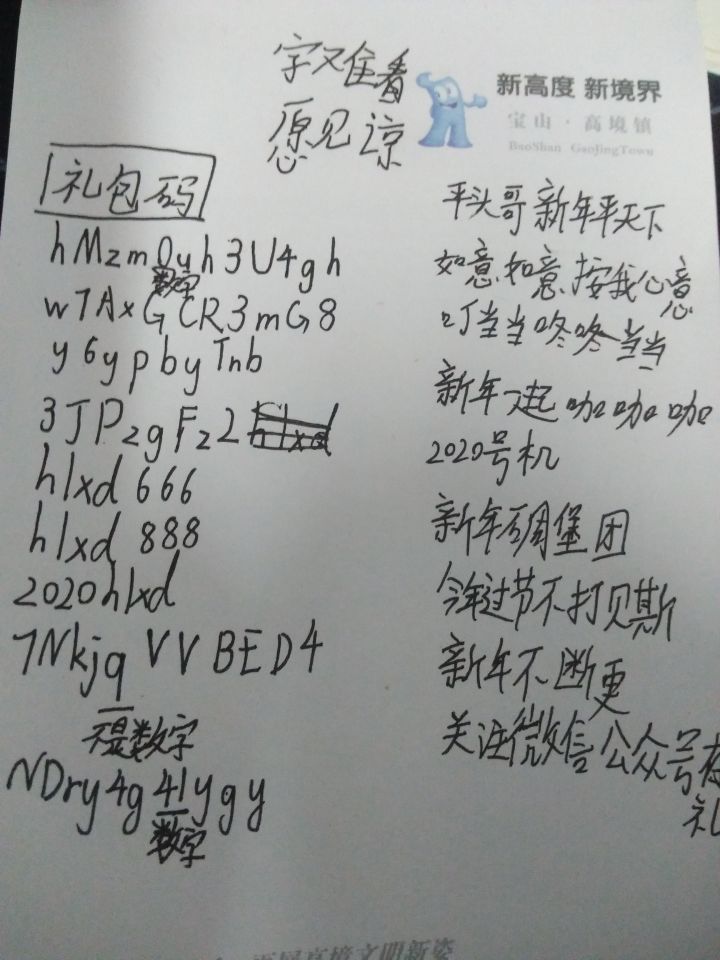 字又难看
愿见谅
新高度 新境界
宝山·高境镇
BaoShan GaoJingTown
礼包码
hMzm0yh3U4gh
数字
w7AxGCR3mG8
y6ypbyTnb
3JPzgFz2
hlxd 666
hlxd 888
2020hlxd
7NkjqVVBED4
不是数字
NDry4g41ygy
数字
平头哥新年平天下
如意如意按我心意
叮当当咚咚当当
新年一起咖咖咖
2020号机
新年碉堡团
今年过节不打贝斯
新年不断更
关注微信公众号有
礼